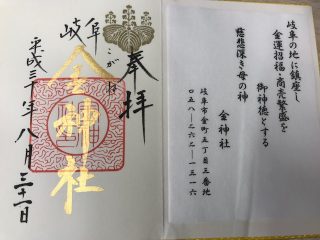 奉拝
岐阜
こがね
金神社
平成三十年八月三十一日
岐阜の地に鎮座し
金運招福・商売繁盛を
御神徳とする
慈悲深き母の神
金神社
岐阜市金町五丁目三番地
〇五八―二六二―一三一六